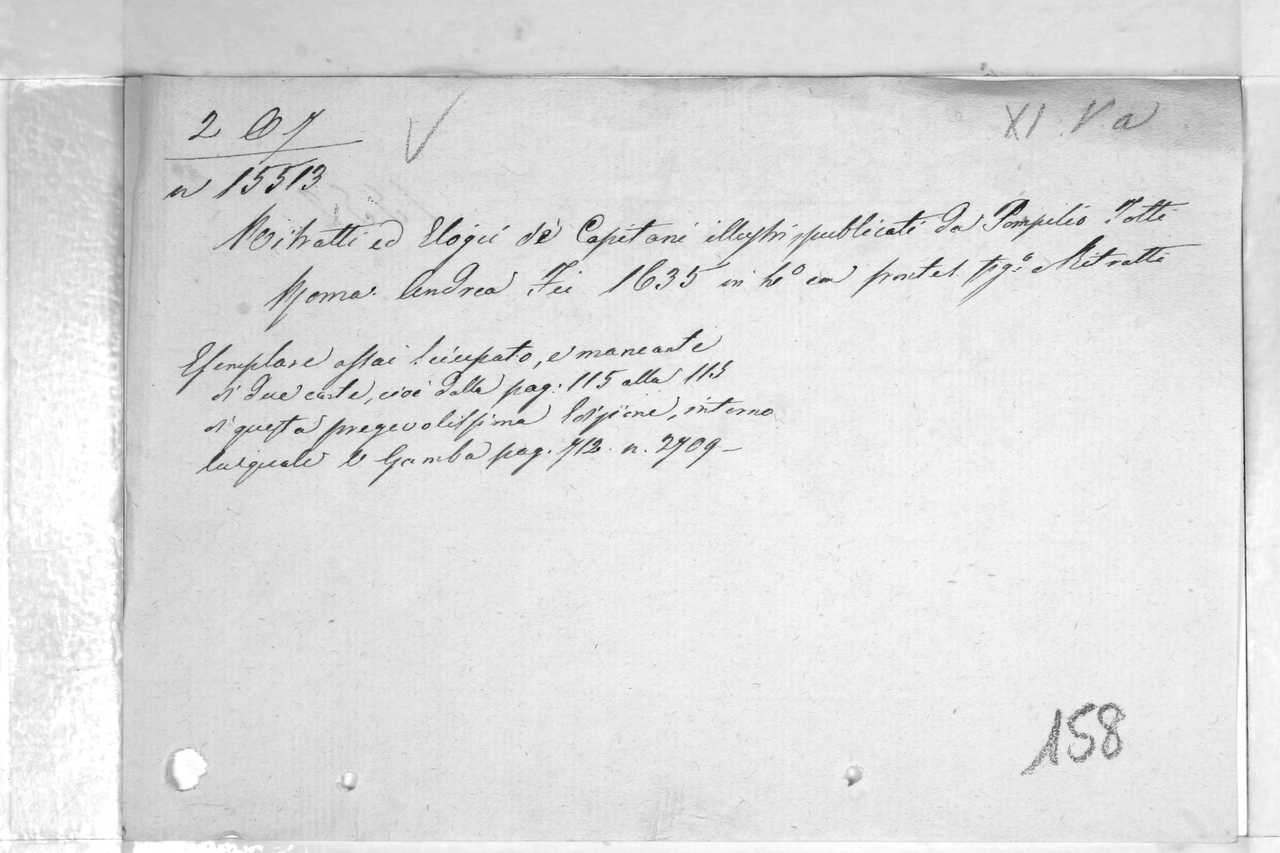 2 B 7
XI V a
n 15513
Ritratti ed Elogii dè Capitani illustri, publicati da Pompilio Totti
Roma. Andrea Fei 1635 in 4º con fig.º Ritratti
Esemplare assai sciupato, e mancante
di due carte, cioè dalla pag. 115 alla 115
di questa pregevolissima Edizione, intorno
la quale è Gamba pag. 712. n. 2709 –
158